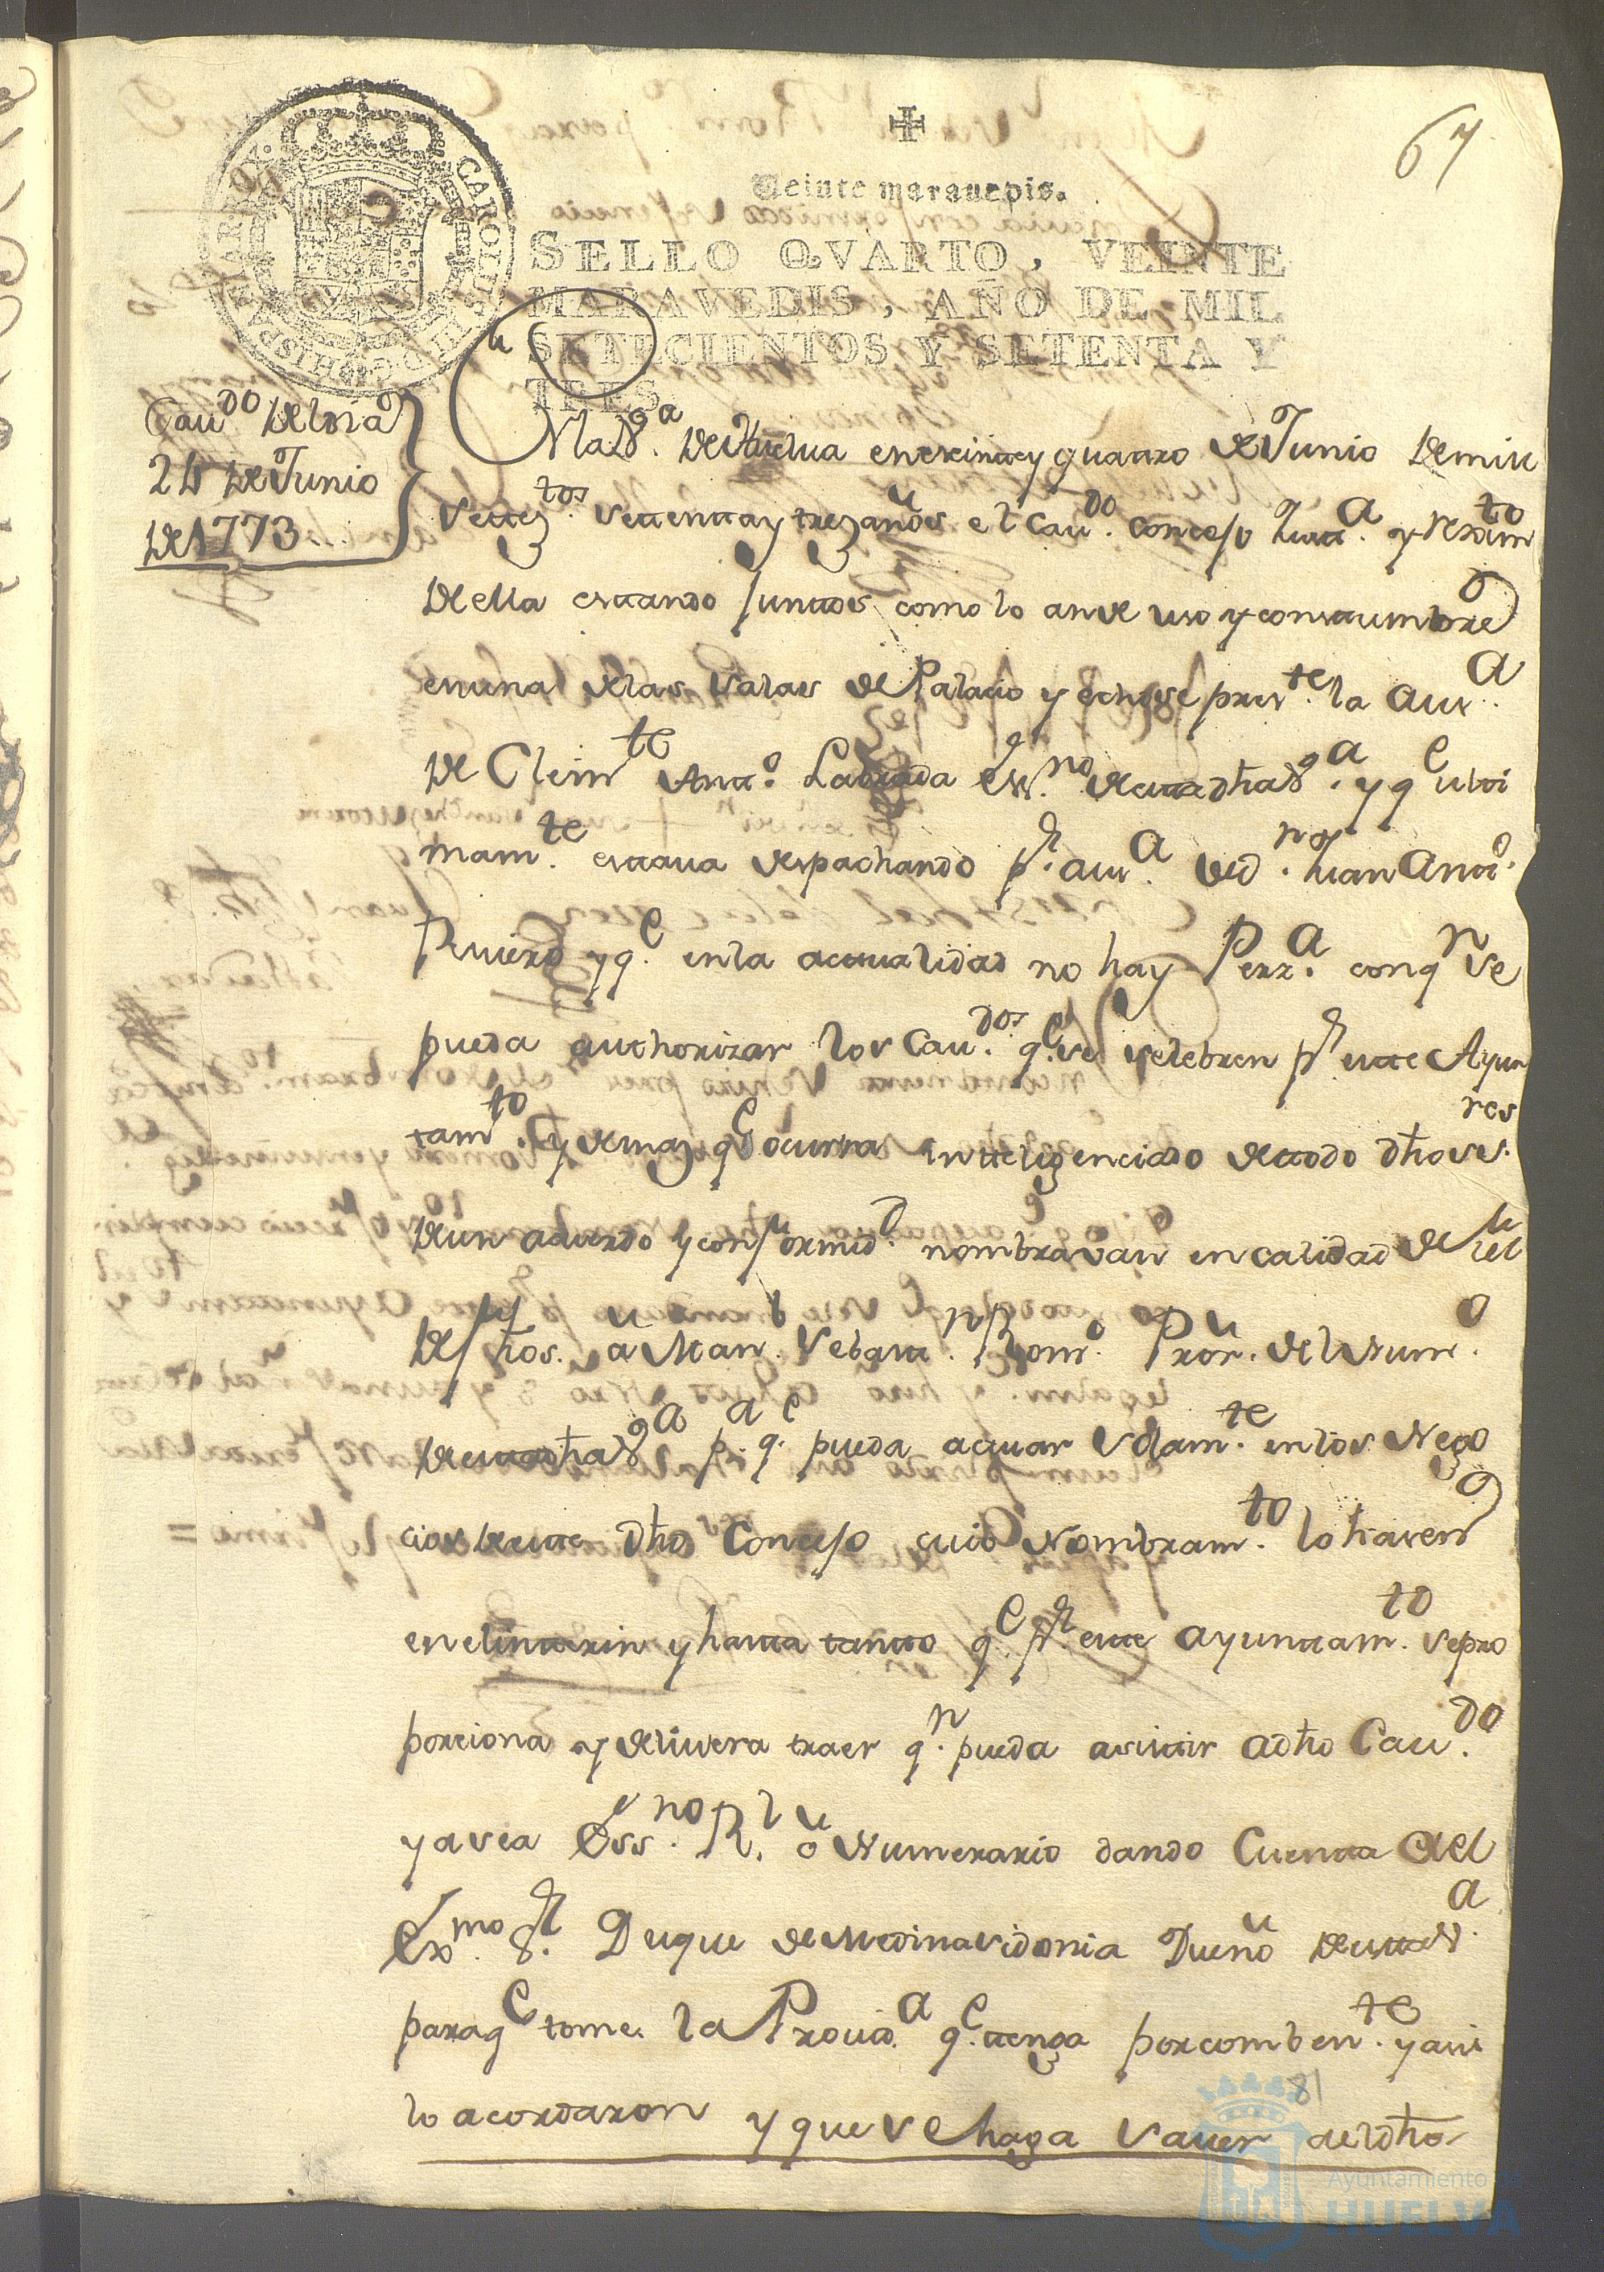 67
Veinte maravedis.
SELLO QVARTO, VEINTE
MARAVEDIS, AÑO DE MIL
SETECIENTOS Y SETENTA Y
TRES.
CAROLUS III D.G. HISPANIAR. REX
Cavdo del dia
24 de Junio
de 1773
En la Va. de Huelva en veinte y quattro de Junio de mill
settezos. settenta y trez años el Cavdo. Concejo Justa. y Reximto
de ella estando juntos como lo an de uso y constumbre
en una de las Salas de Palacio y echose preste. la ausa.
de Clemte Anto. Labrada Essno de esta dha Va. y qe ulti
mamte. estava despachando pr. ausa. de dn. Juan Anto.
Rivero y qe. en la actualidad no hay Perza. con qn se
pueda authorizar los Cavdos. qe. se zelebren pr este Ayun
tamto. y demaz qe ocurra intteligenciado de todo dhos sres.
de un acuerdo y conformidd. nombravan en calidad de fiel
de fhos. a Manl. Sebastn. Romo. Pror. del Numo.
de esta dha Va pa. qe. pueda actuar Solamte. en los Nego
cios de este dho Concejo cuio Nombramto. lo hasen
en el intterin y hasta tanto qe. pr. este ayuntamto. se pro
porciona y delivera traer qn. pueda asistir a dho Cavdo.
ya sea Essno. Rl. o Numerario dando Cuenta del
Exmo. Sr. Duque de Medinasidonia Dueño de esta Va.
para qe tome la Provida. qe. tenga por combente. y asi
lo acordaron y que se haga saver a el dho
81
Ayuntamiento de
HUELVA